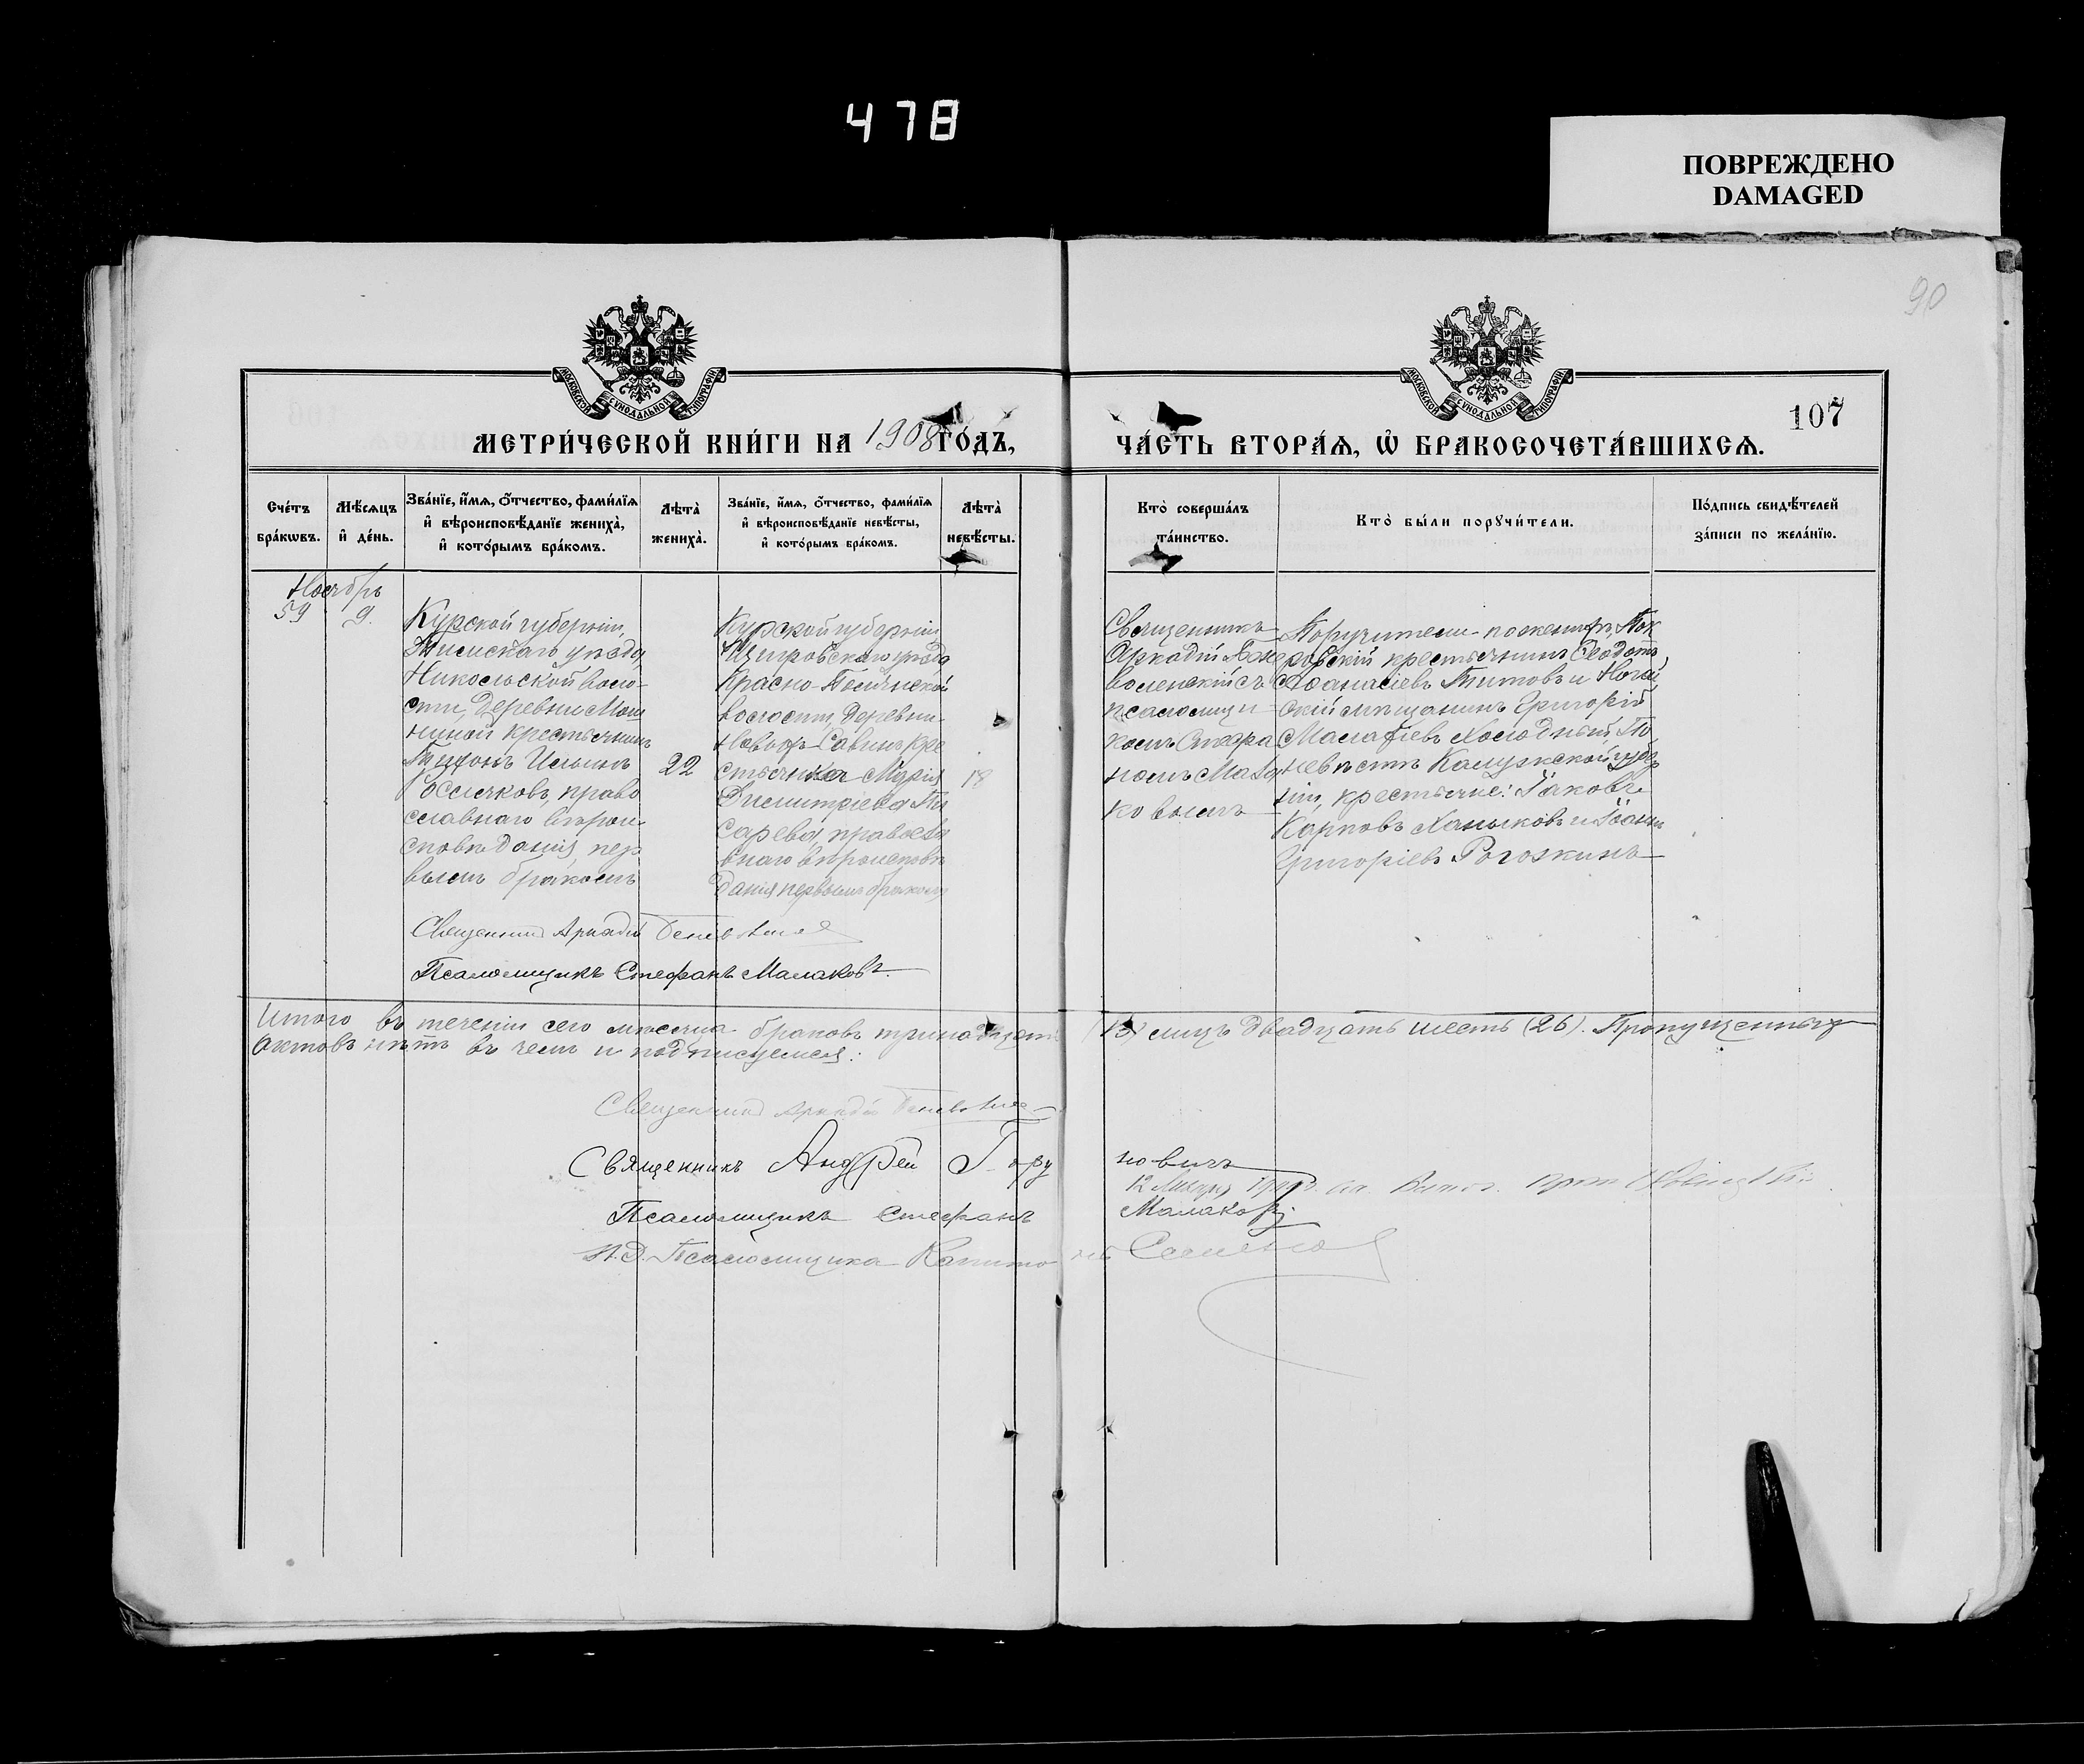 478
ПОВРЕЖДЕНО
DAMAGED
90
107
МОСКОВСКОЙ СѴНОДАЛЬНОЙ ТИПОГРАФІИ
МОСКОВСКОЙ СѴНОДАЛЬНОЙ ТИПОГРАФІИ
МЕТРИ́ЧЕСКОЙ КНИ́ГИ НА 1908 ГО́ДЪ,
ЧА́СТЬ ВТОРА́Ѧ, Ѡ҆ БРАКОСОЧЕТА́ВШИХСѦ.
Сче́тъ
бра́кωвъ.
Мѣ́сѧцъ
и҆ де́нь.
Зва́нїе, и҆́мѧ, ѻ҆́тчество, фами́лїѧ
и҆ вѣроисповѣ́данїе жениха̀,
и҆ кото́рымъ бра́комъ.
Лѣ́та̀
жениха̀.
Зва́нїе, и҆́мѧ, ѻ҆́тчество, фами́лїѧ
и҆ вѣроисповѣ́данїе невѣ́сты,
и҆ кото́рымъ бра́комъ.
Лѣ́та̀
невѣ́сты.
Кто̀ соверша́лъ
та́инство.
Кто̀ бы́ли порꙋчи́тели.
По́дпись свидѣ́телей
за́писи по жела́нїю.
Ноябрь
59
9.
Курской губерніи,
Тимскаго уѣзда
Никольской воло-
сти, деревни
крестьянинъ
Ильинъ
право
славнаго вѣрои-
сповѣданія, пер
вымъ бракомъ
22
Курской губерніи,
Щигровскаго уѣзда
Красно-Полянской
волости, деревни
Кре
стьянка Марія
Димитріева Пи
сарева, правосла
внаго вѣроисповѣ
данія первымъ бракомъ
18
Священникъ
Аркадій
съ
псаломщи-
комъ Стефа
номъ Мала
ковымъ
Поручители по женихѣ: Пок
ровскій крестьянинъ Ѳеодотъ
Аѳанасіевъ Титовъ и Ногай
скій мѣщанинъ Григорій
Холодный, По
невѣстѣ Калужской губер
ніи, крестьяне: Іаковъ
Карповъ Ханыковъ и Іоаннъ
Григоріевъ Рогозкинъ
Священникъ Аркадій
Псаломщикъ Стефанъ Малаковъ.
Итого въ теченіи сего мѣсяца браковъ тринадцать (13) лицъ двадцать шесть (26). Пропущенныхъ
актовъ нѣтъ въ чемъ и подписуемся:
Священникъ Аркадій
Священникъ Андрей
новичъ
Псаломщикъ Стефанъ Малаковъ.
И. Д. Псаломщика